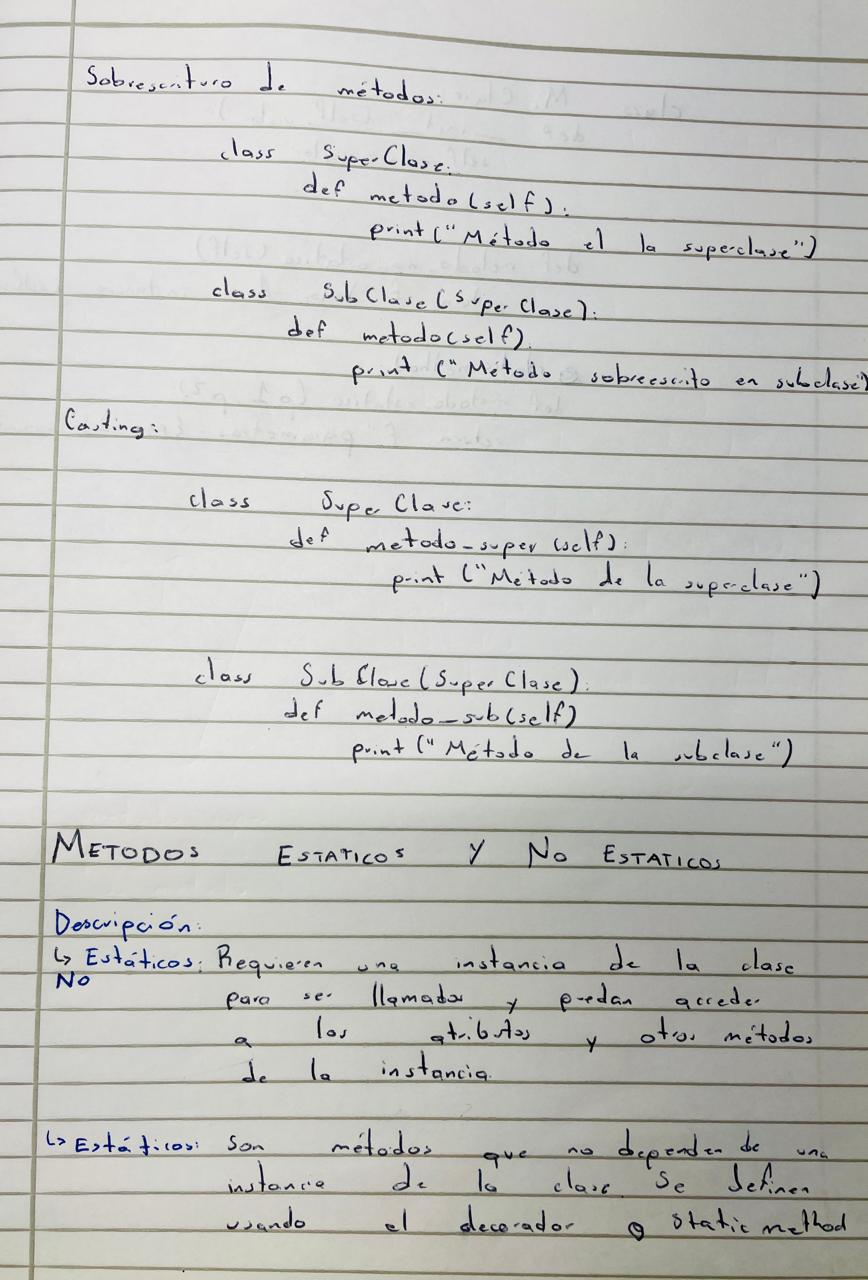 Sobrescritura de métodos:
class SuperClase:
def metodo(self):
print("Método el la superclase")
class SubClase(SuperClase):
def metodo(self).
print("Método sobreescrito en subclase")
Casting:
class SuperClase:
def metodo_super(self):
print("Método de la superclase")
class SubClase(SuperClase):
def metodo_sub(self)
print("Método de la subclase")
METODOS ESTATICOS Y NO ESTATICOS
Descripción:
↳ Estáticos: Requieren una instancia de la clase
NO para ser llamados y puedan acceder
a los atributos y otros métodos
de la instancia.
↳ Estáticos: Son métodos que no dependen de una
instancia de la clase. Se definen
usando el decorador @staticmethod